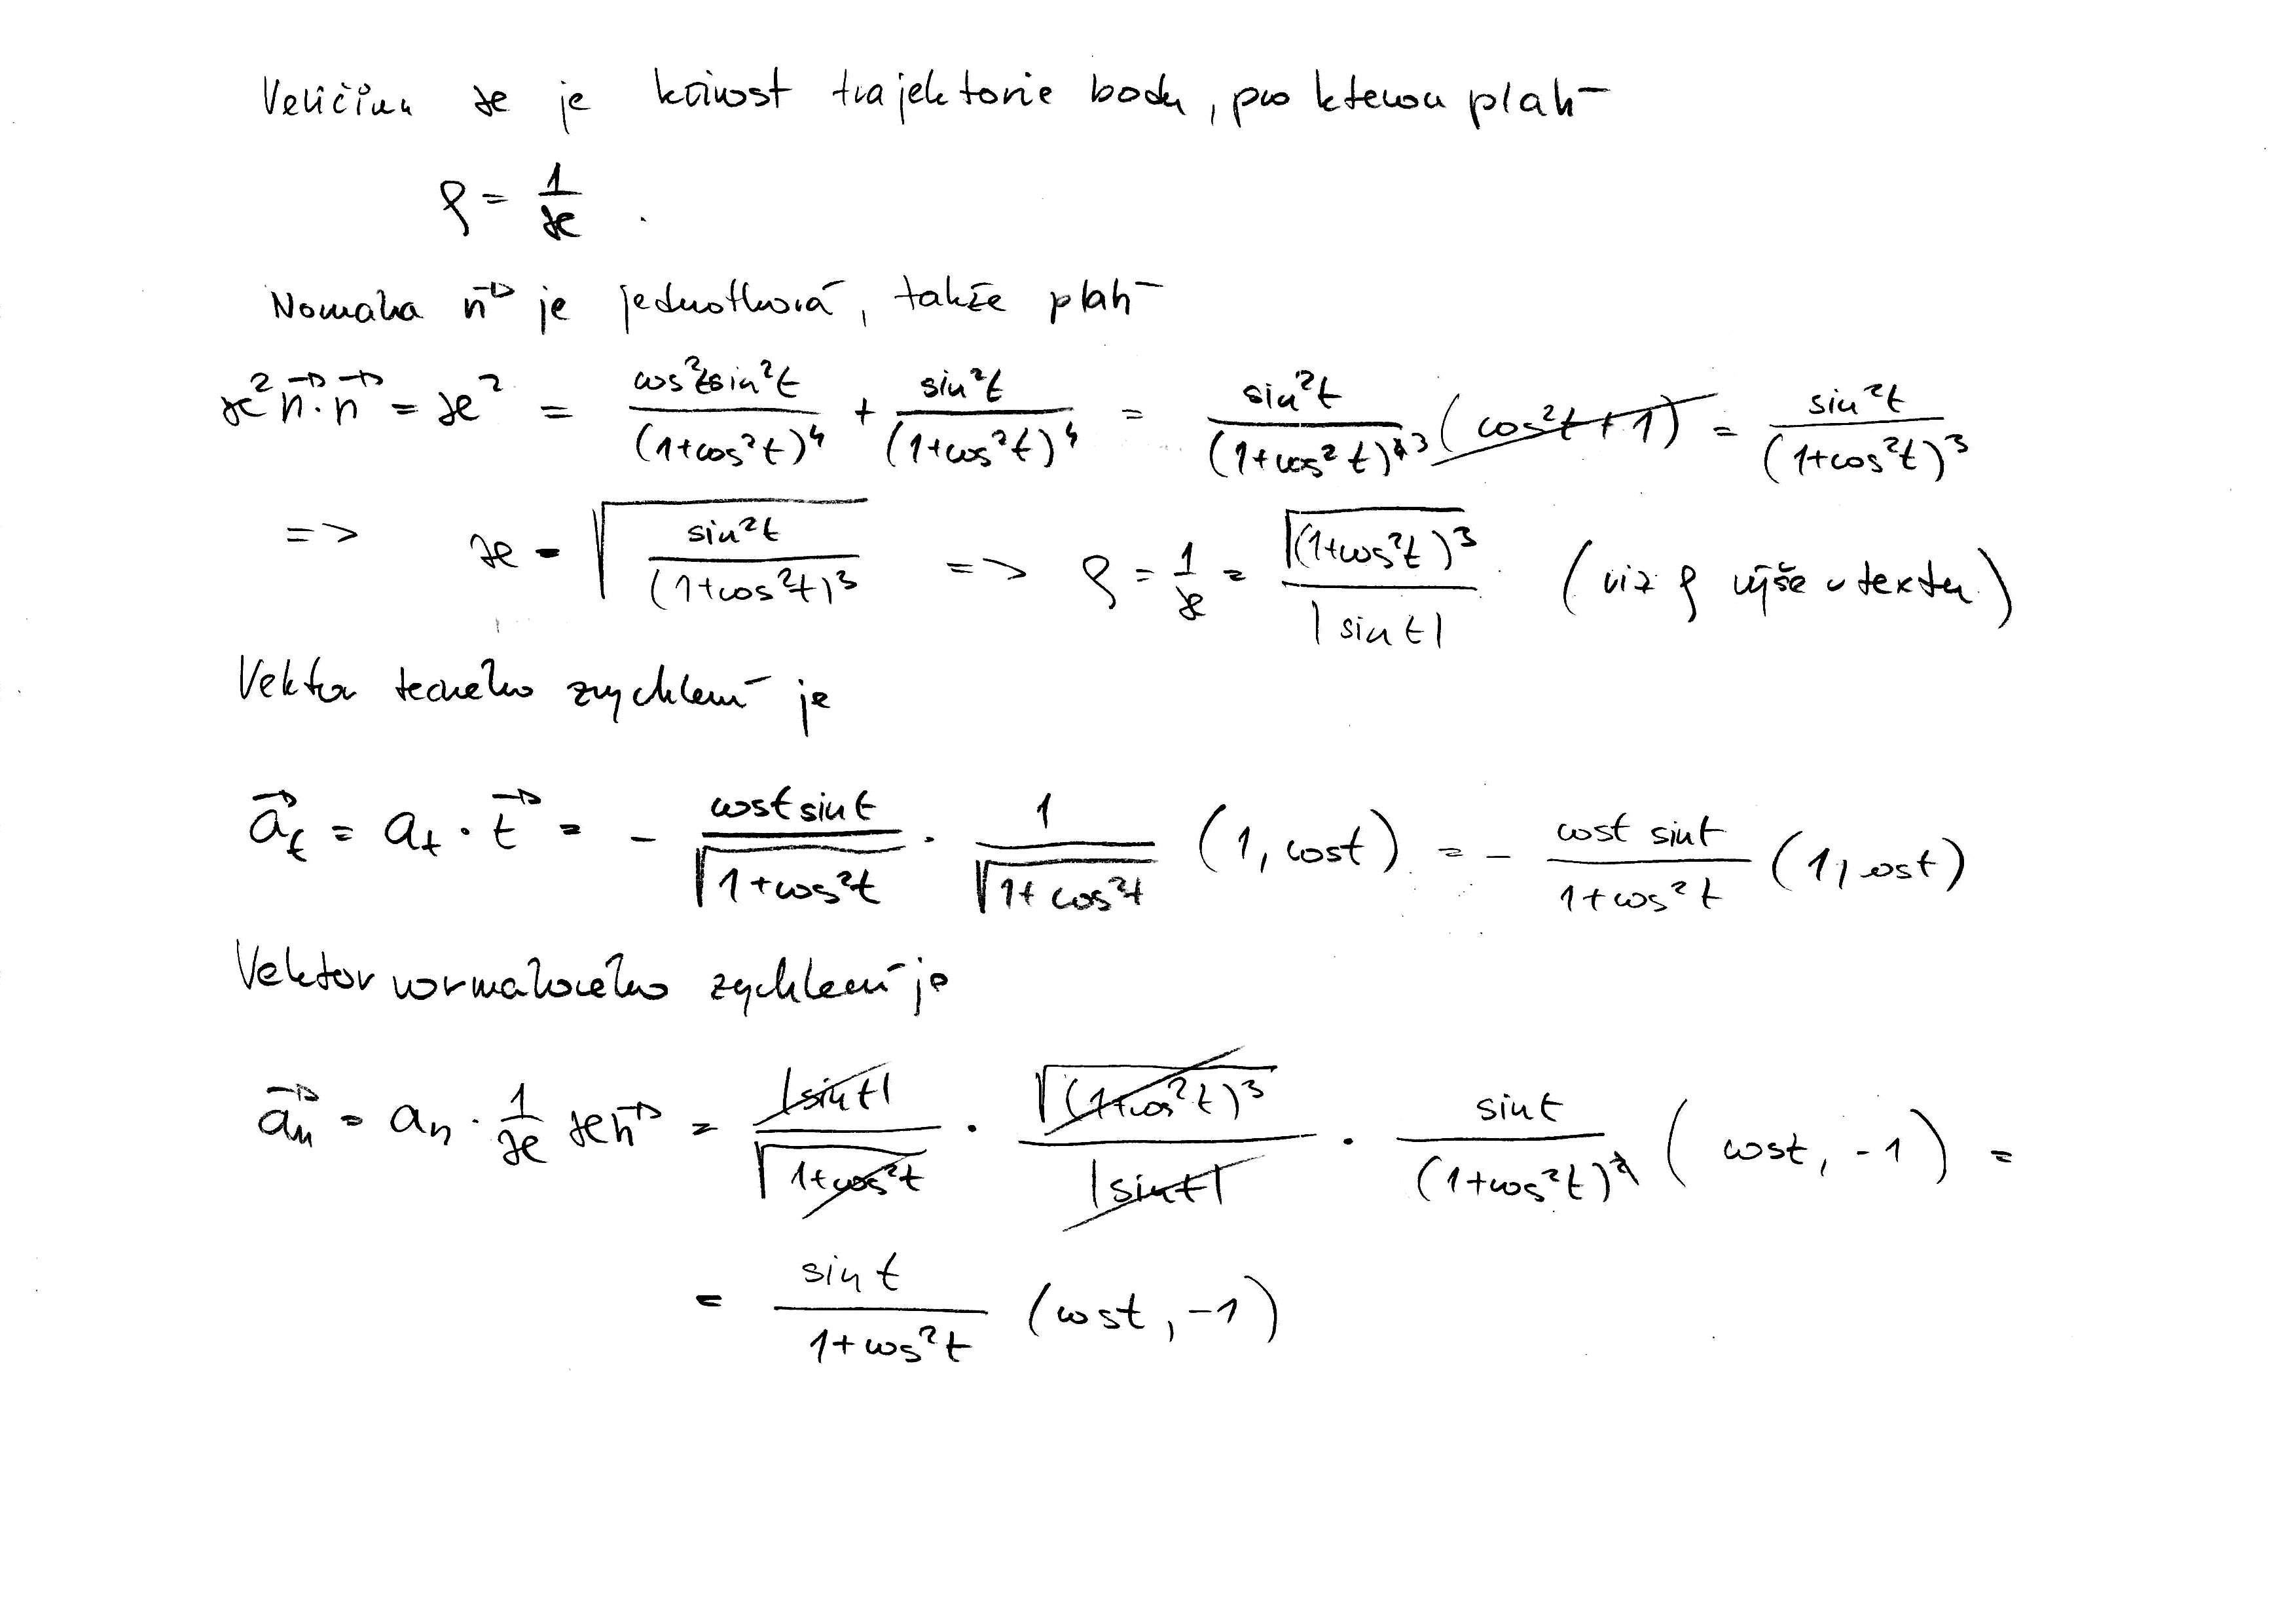 Veličina æ je křivost trajektorie bodu, pro kterou platí
ρ = 1/æ .
Normála n⃗ je jednotková, takže platí
æ² n⃗ · n⃗ = æ² = cos²t sin²t / (1+cos²t)⁴ + sin²t / (1+cos²t)⁴ = sin²t / (1+cos²t)³ (cos²t + 1) = sin²t / (1+cos²t)³
=> æ = √( sin²t / (1+cos²t)³ ) => ρ = 1/æ = √((1+cos²t)³) / |sin t| (viz ρ výše v textu)
Vektor tečného zrychlení je
a⃗t = at · t⃗ = - cos t sin t / √(1+cos²t) · 1 / √(1+cos²t) (1, cos t) = - cos t sin t / (1+cos²t) (1, cos t)
Vektor normálového zrychlení je
a⃗n = an · 1/æ æ n⃗ = |sin t| / √(1+cos²t) · √((1+cos²t)³) / |sin t| · sin t / (1+cos²t)² (cos t, -1) =
= sin t / (1+cos²t) (cos t, -1)